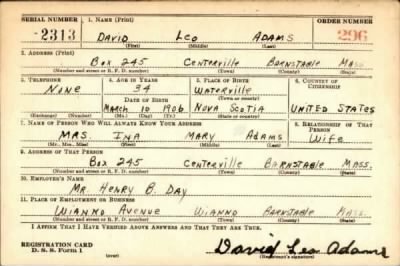 SERIAL NUMBER 1. NAME (Print) ORDER NUMBER
2313 DAVID LEO ADAMS 296
(First) (Middle) (Last)
2. ADDRESS (Print)
BOX 245 CENTERVILLE BARNSTABLE MASS.
(Number and street or R. F. D. number) (Town) (County) (State)
3. TELEPHONE 4. AGE IN YEARS 5. PLACE OF BIRTH 6. COUNTRY OF CITIZENSHIP
NONE 34 WATERVILLE
DATE OF BIRTH (Town or county)
MARCH 10 1906 NOVA SCOTIA UNITED STATES
(Exchange) (Number) (Mo.) (Day) (Yr.) (State or country)
7. NAME OF PERSON WHO WILL ALWAYS KNOW YOUR ADDRESS 8. RELATIONSHIP OF THAT PERSON
MRS. INA MARY ADAMS WIFE
(Mr., Mrs., Miss) (First) (Middle) (Last)
9. ADDRESS OF THAT PERSON
BOX 245 CENTERVILLE BARNSTABLE MASS.
(Number and street or R. F. D. number) (Town) (County) (State)
10. EMPLOYER'S NAME
MR. HENRY B. DAY
11. PLACE OF EMPLOYMENT OR BUSINESS
WIANNO AVENUE WIANNO BARNSTABLE MASS.
(Number and street or R. F. D. number) (Town) (County) (State)
I AFFIRM THAT I HAVE VERIFIED ABOVE ANSWERS AND THAT THEY ARE TRUE.
REGISTRATION CARD David Leo Adams
D. S. S. Form 1 (over) (Registrant's signature)